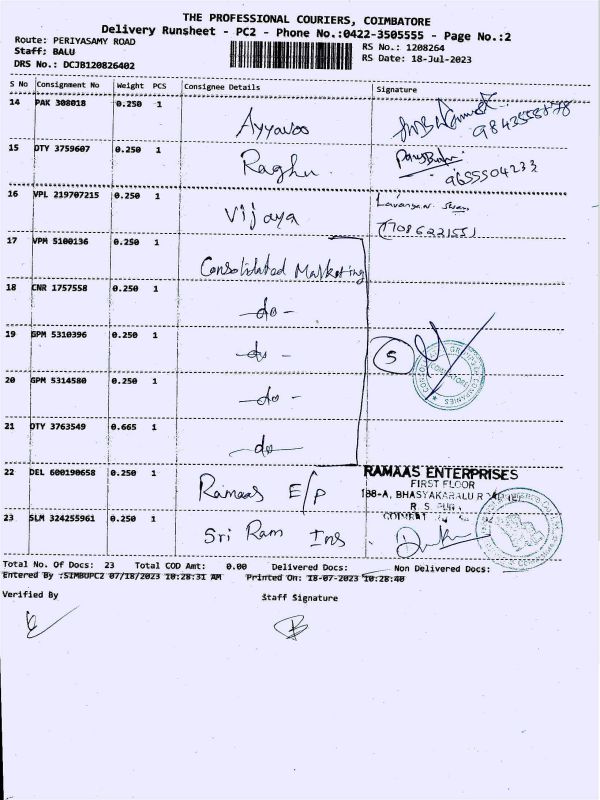 THE PROFESSIONAL COURIERS, COIMBATORE
Delivery Runsheet - PC2 - Phone No.:0422-3505555 - Page No.:2
Route: PERIYASAMY ROAD
Staff: BALU
DRS No.: DCJB120826402
RS No.: 1208264
RS Date: 18-Jul-2023
S No Consignment No Weight PCS Consignee Details Signature
14 PAK 308018 0.250 1 Ayyavoo
15 OTY 3759607 0.250 1 Raghu
9655504233
16 VPL 219707215 0.250 1 Vijaya
17 VPM 5100136 0.250 1 Consolidated Marketing
18 CNR 1757558 0.250 1 -do-
19 GPM 5310396 0.250 1 -do- 5
20 GPM 5314580 0.250 1 -do-
COIMBATORE
21 OTY 3763549 0.665 1 -do-
22 DEL 600190658 0.250 1 Ramaas E/P
RAMAAS ENTERPRISES
FIRST FLOOR
188-A, BHASYAKARALU
R. S.
23 SLM 324255961 0.250 1 Sri Ram Ins
Total No. Of Docs: 23 Total COD Amt: 0.00 Delivered Docs: Non Delivered Docs:
Entered By :SIMBUPC2 07/18/2023 10:28:31 AM Printed On: 18-07-2023 10:28:40
Verified By Staff Signature